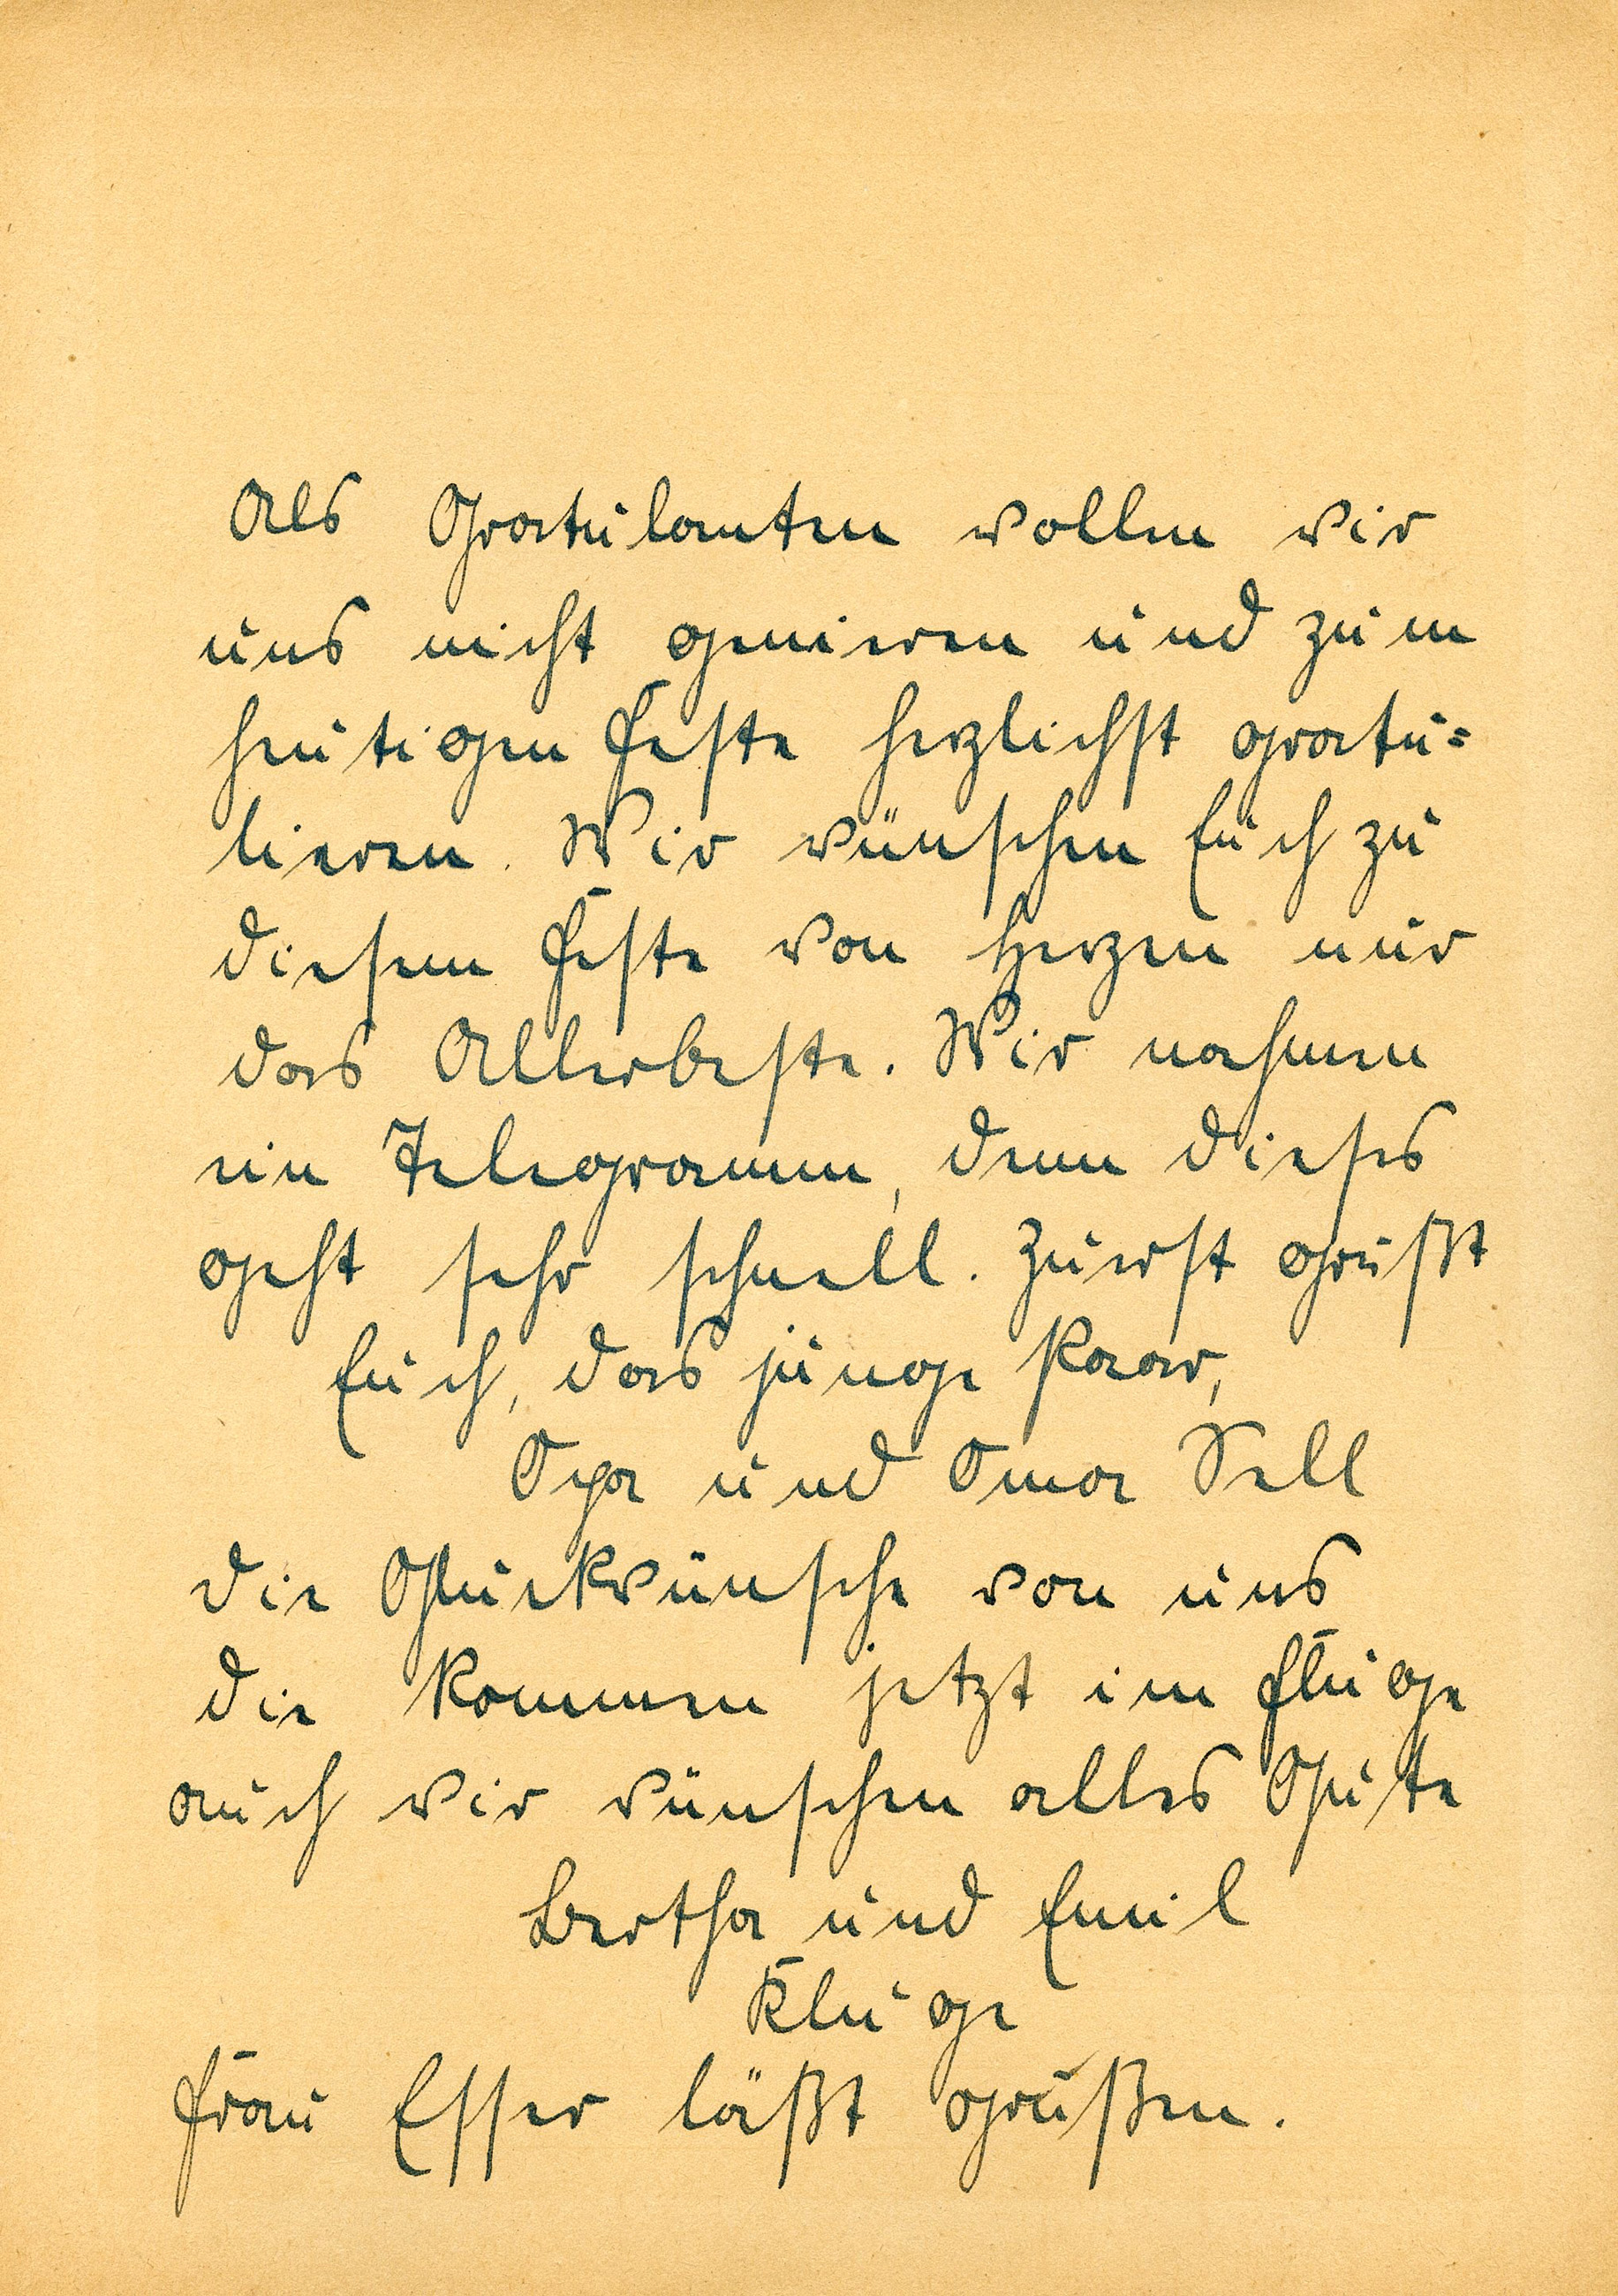 Als Gratulanten wollen wir
uns nicht genieren und zum
heutigen Feste herzlichst gratu=
lieren. Wir wünschen Euch zu
diesem Feste von Herzen nur
das Allerbeste. Wir nahmen
ein Telegramm, denn dieses
geht sehr schnell. Zuerst grüßt
Euch, das junge Paar,
Opa und Oma Sell
die Glückwünsche von uns
die kommen jetzt im Fluge
auch wir wünschen alles Gute
Bertha und Emil
Kluge
Frau Esser läßt grüßen.